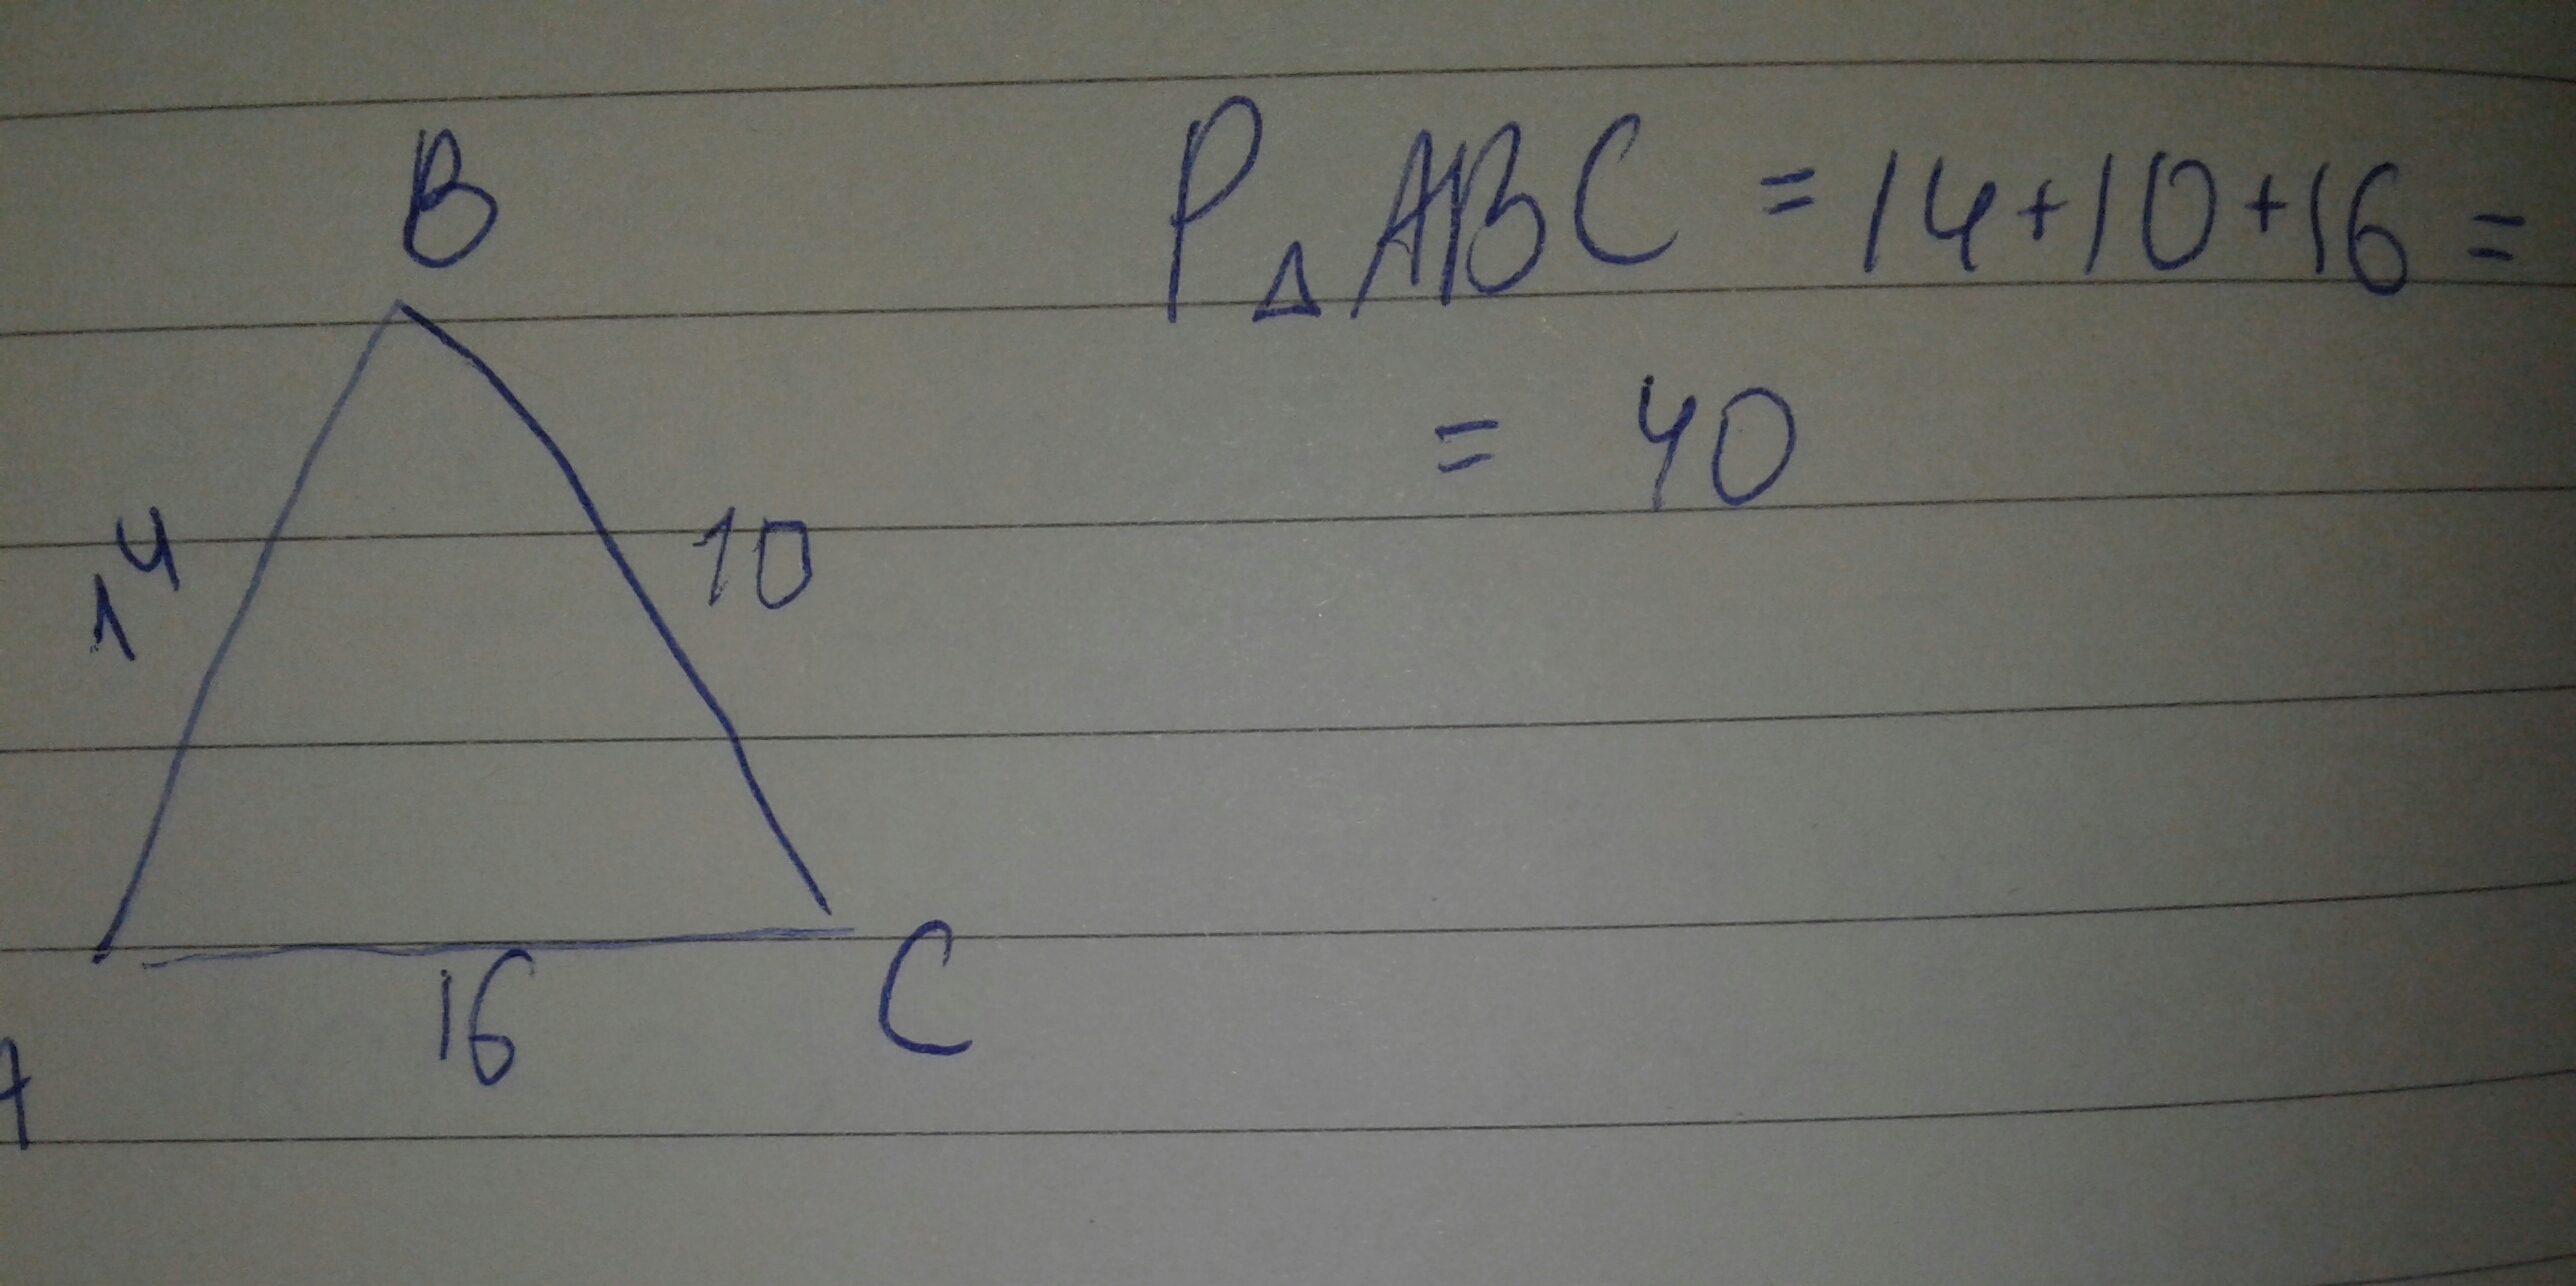 B
P△ABC = 14+10+16 =
= 40
14
10
16
C
A